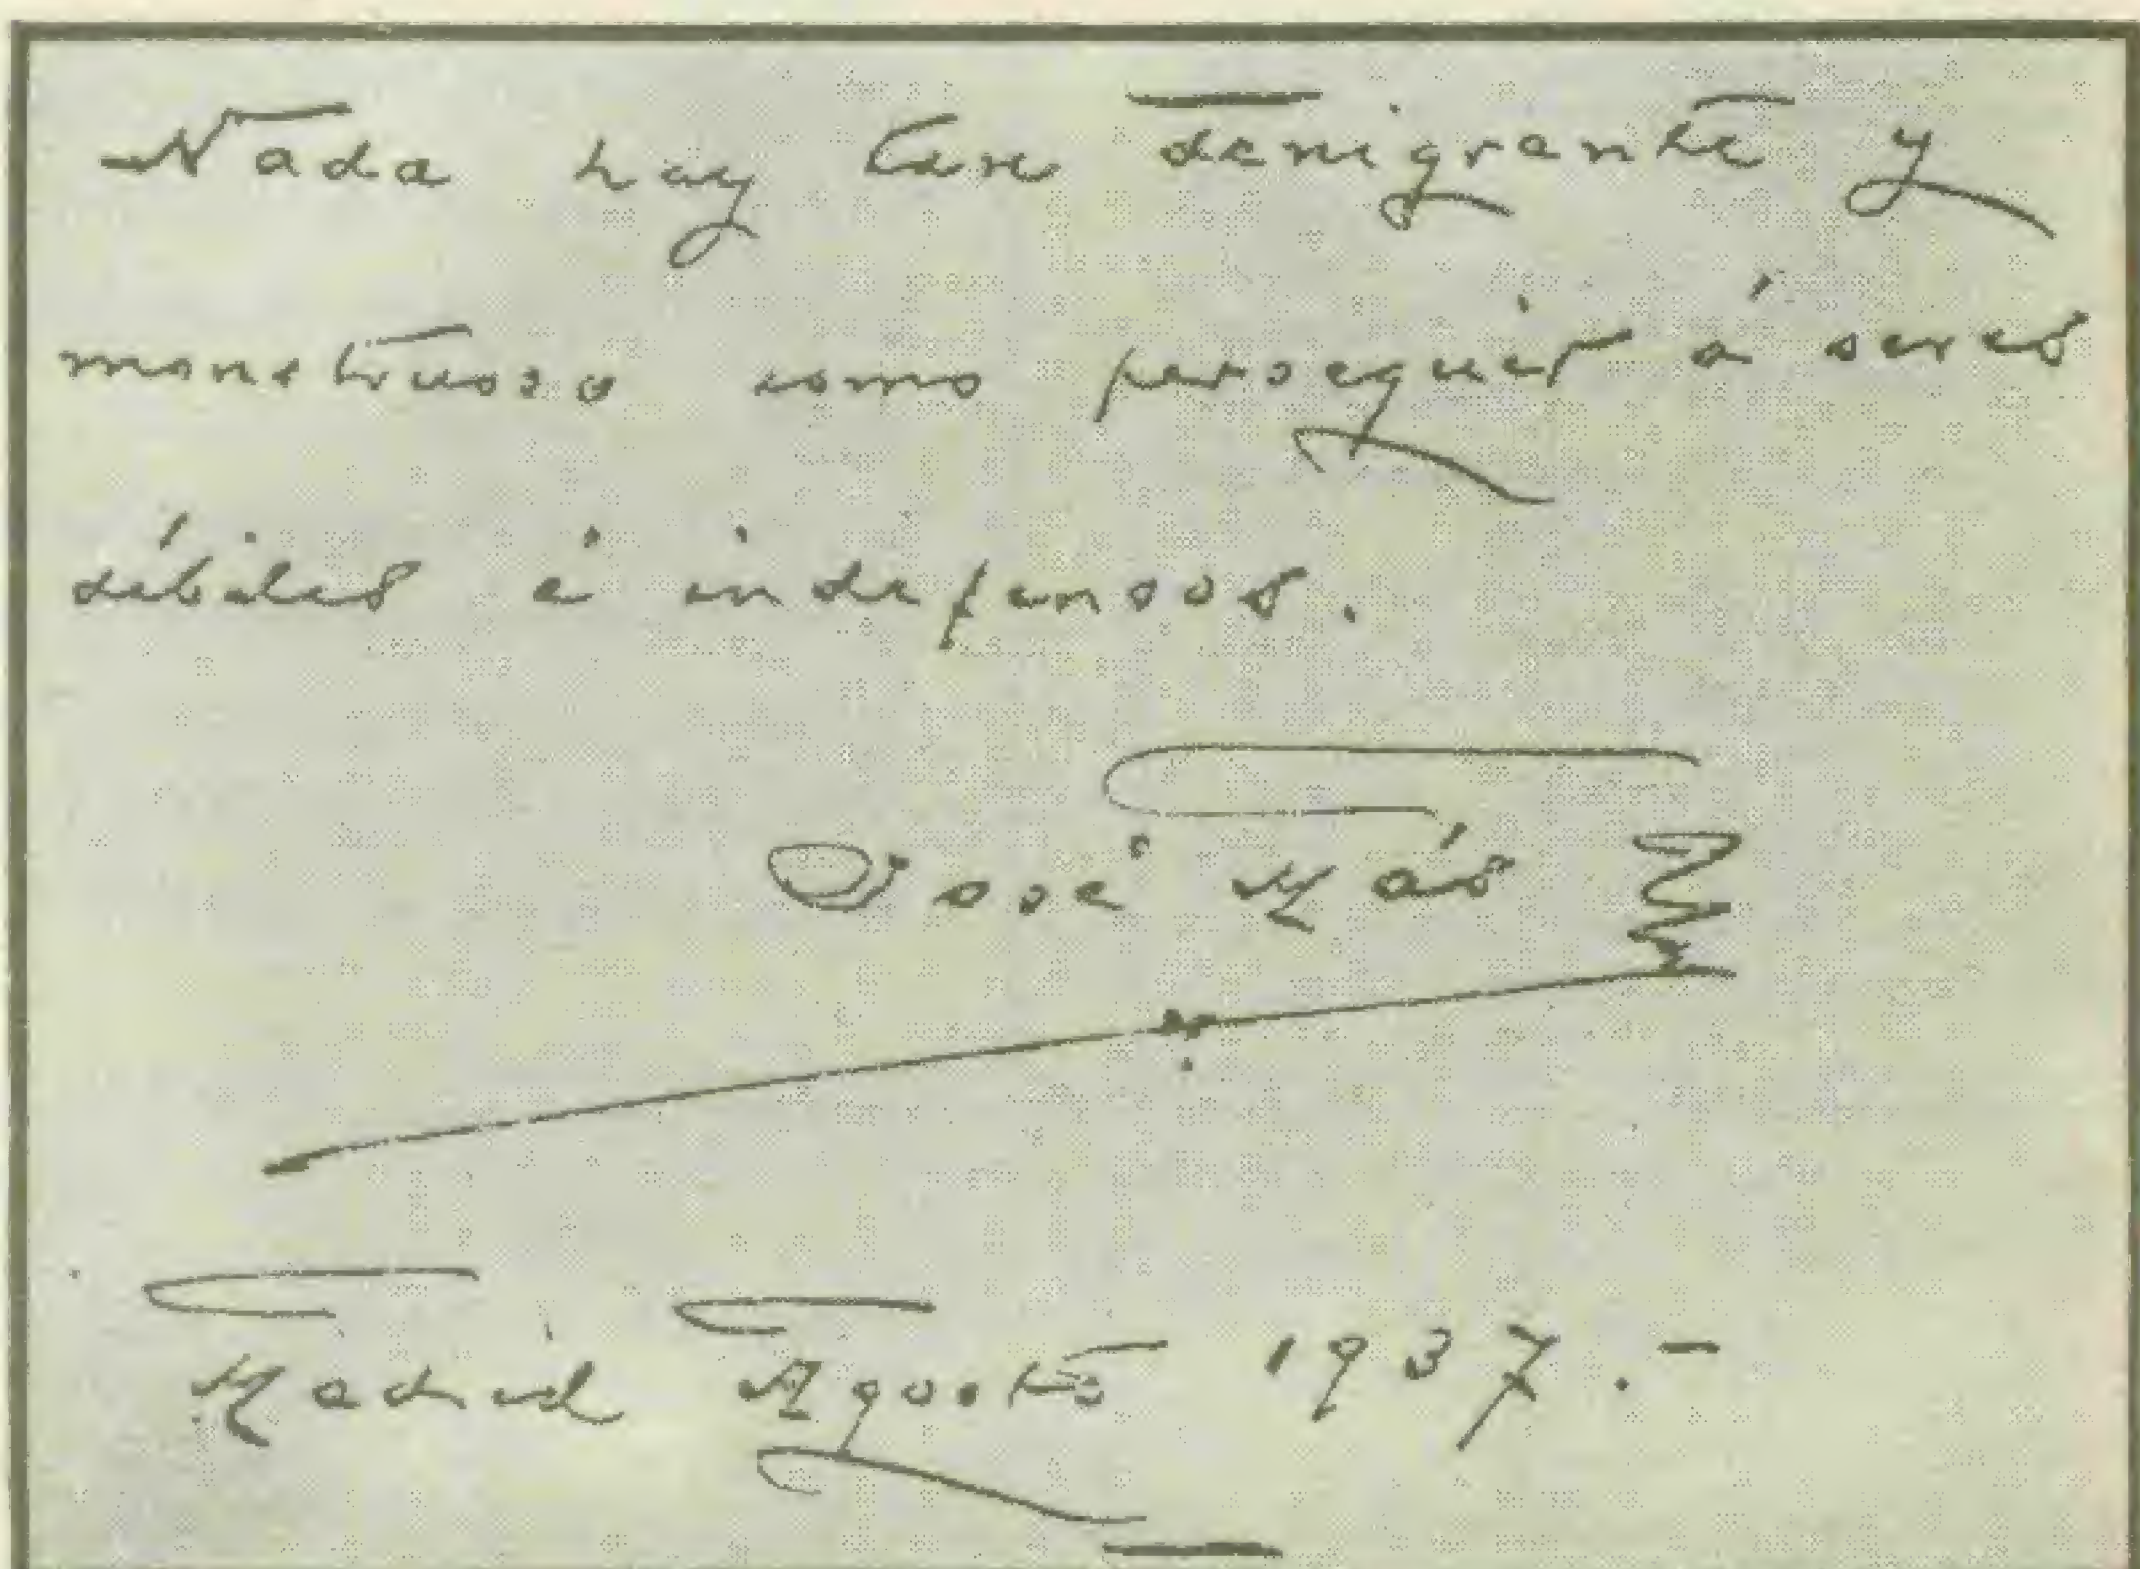 Nada hay tan denigrante y
monstruoso como perseguir á seres
débiles é indefensos.
José Más
Madrid Agosto 1937.-